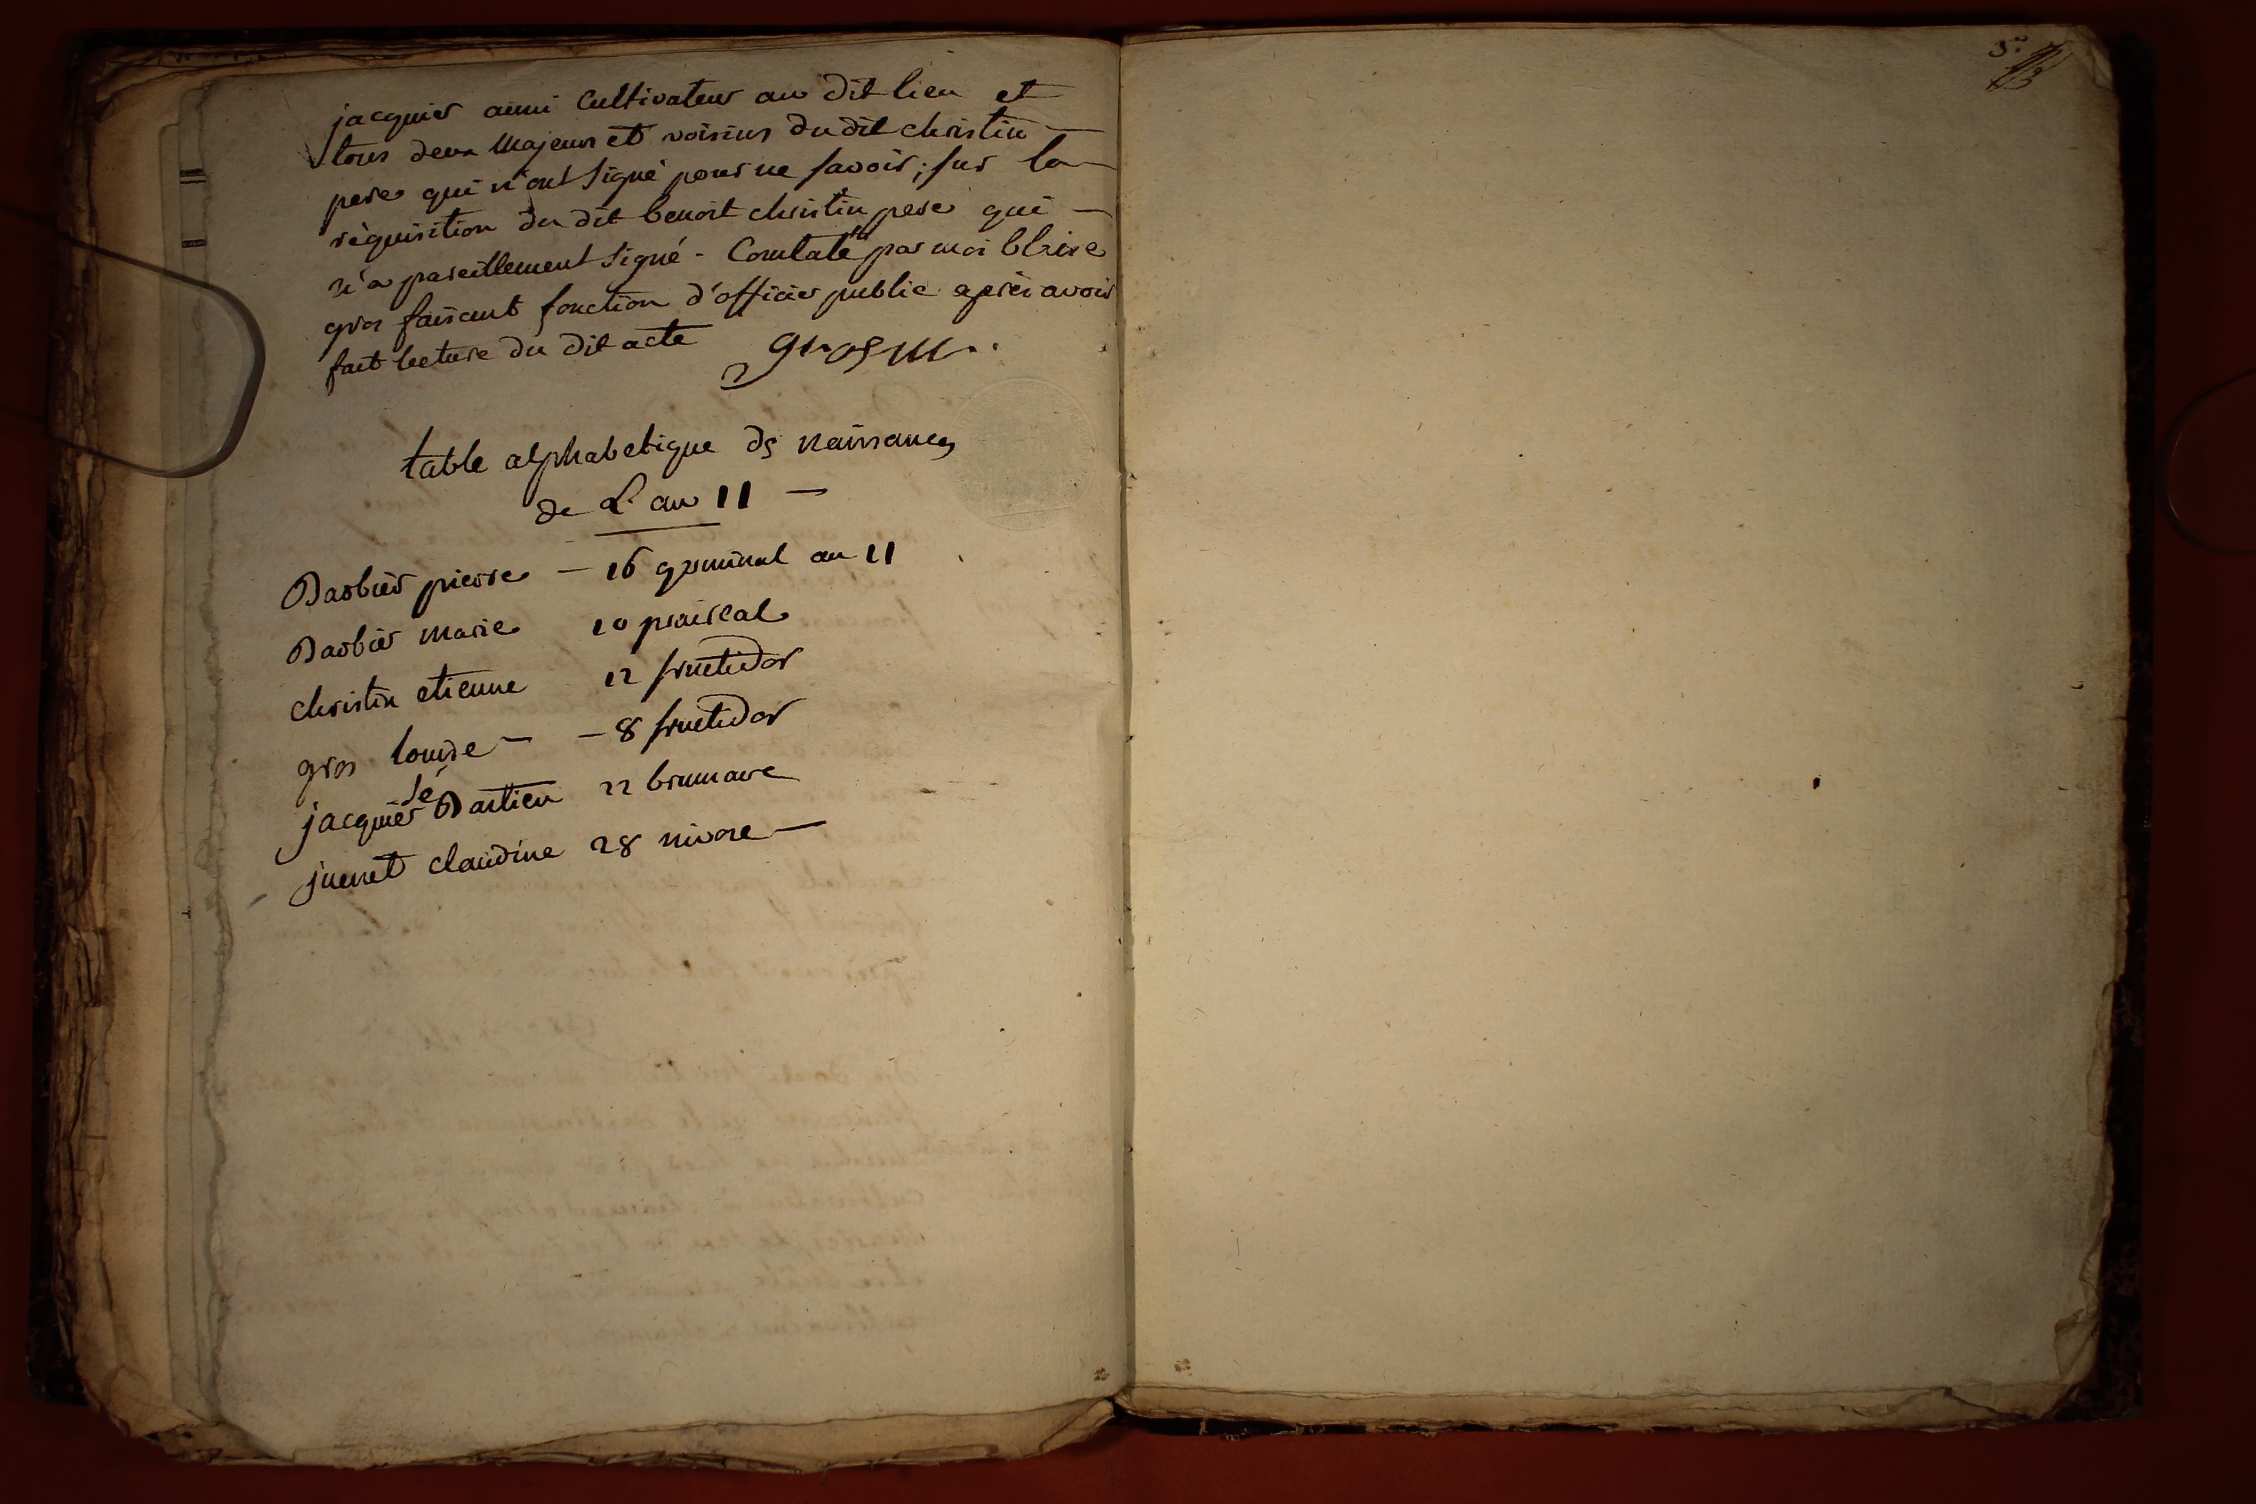 jacquier aussi Cultivateur au dit lieu et
tous deux Majeurs et voisins du dit christin
pere qui n'ont signé pour ne savoir; sur la
réquisition du dit benoit christin pere qui
n'a pareillement signé - Constaté par moi blaise
gros faisant fonction d'officier public après avoir
fait lecture du dit acte gros m..
table alphabetique ds naissances
de L'an 11
Barbier pierre - 16 germinal an 11
Barbier marie 10 prairial
christin etienne 12 fructidor
gros louise - - 8 fructidor
jacquier séBastien 22 brumaire
juenet claudine 28 nivose